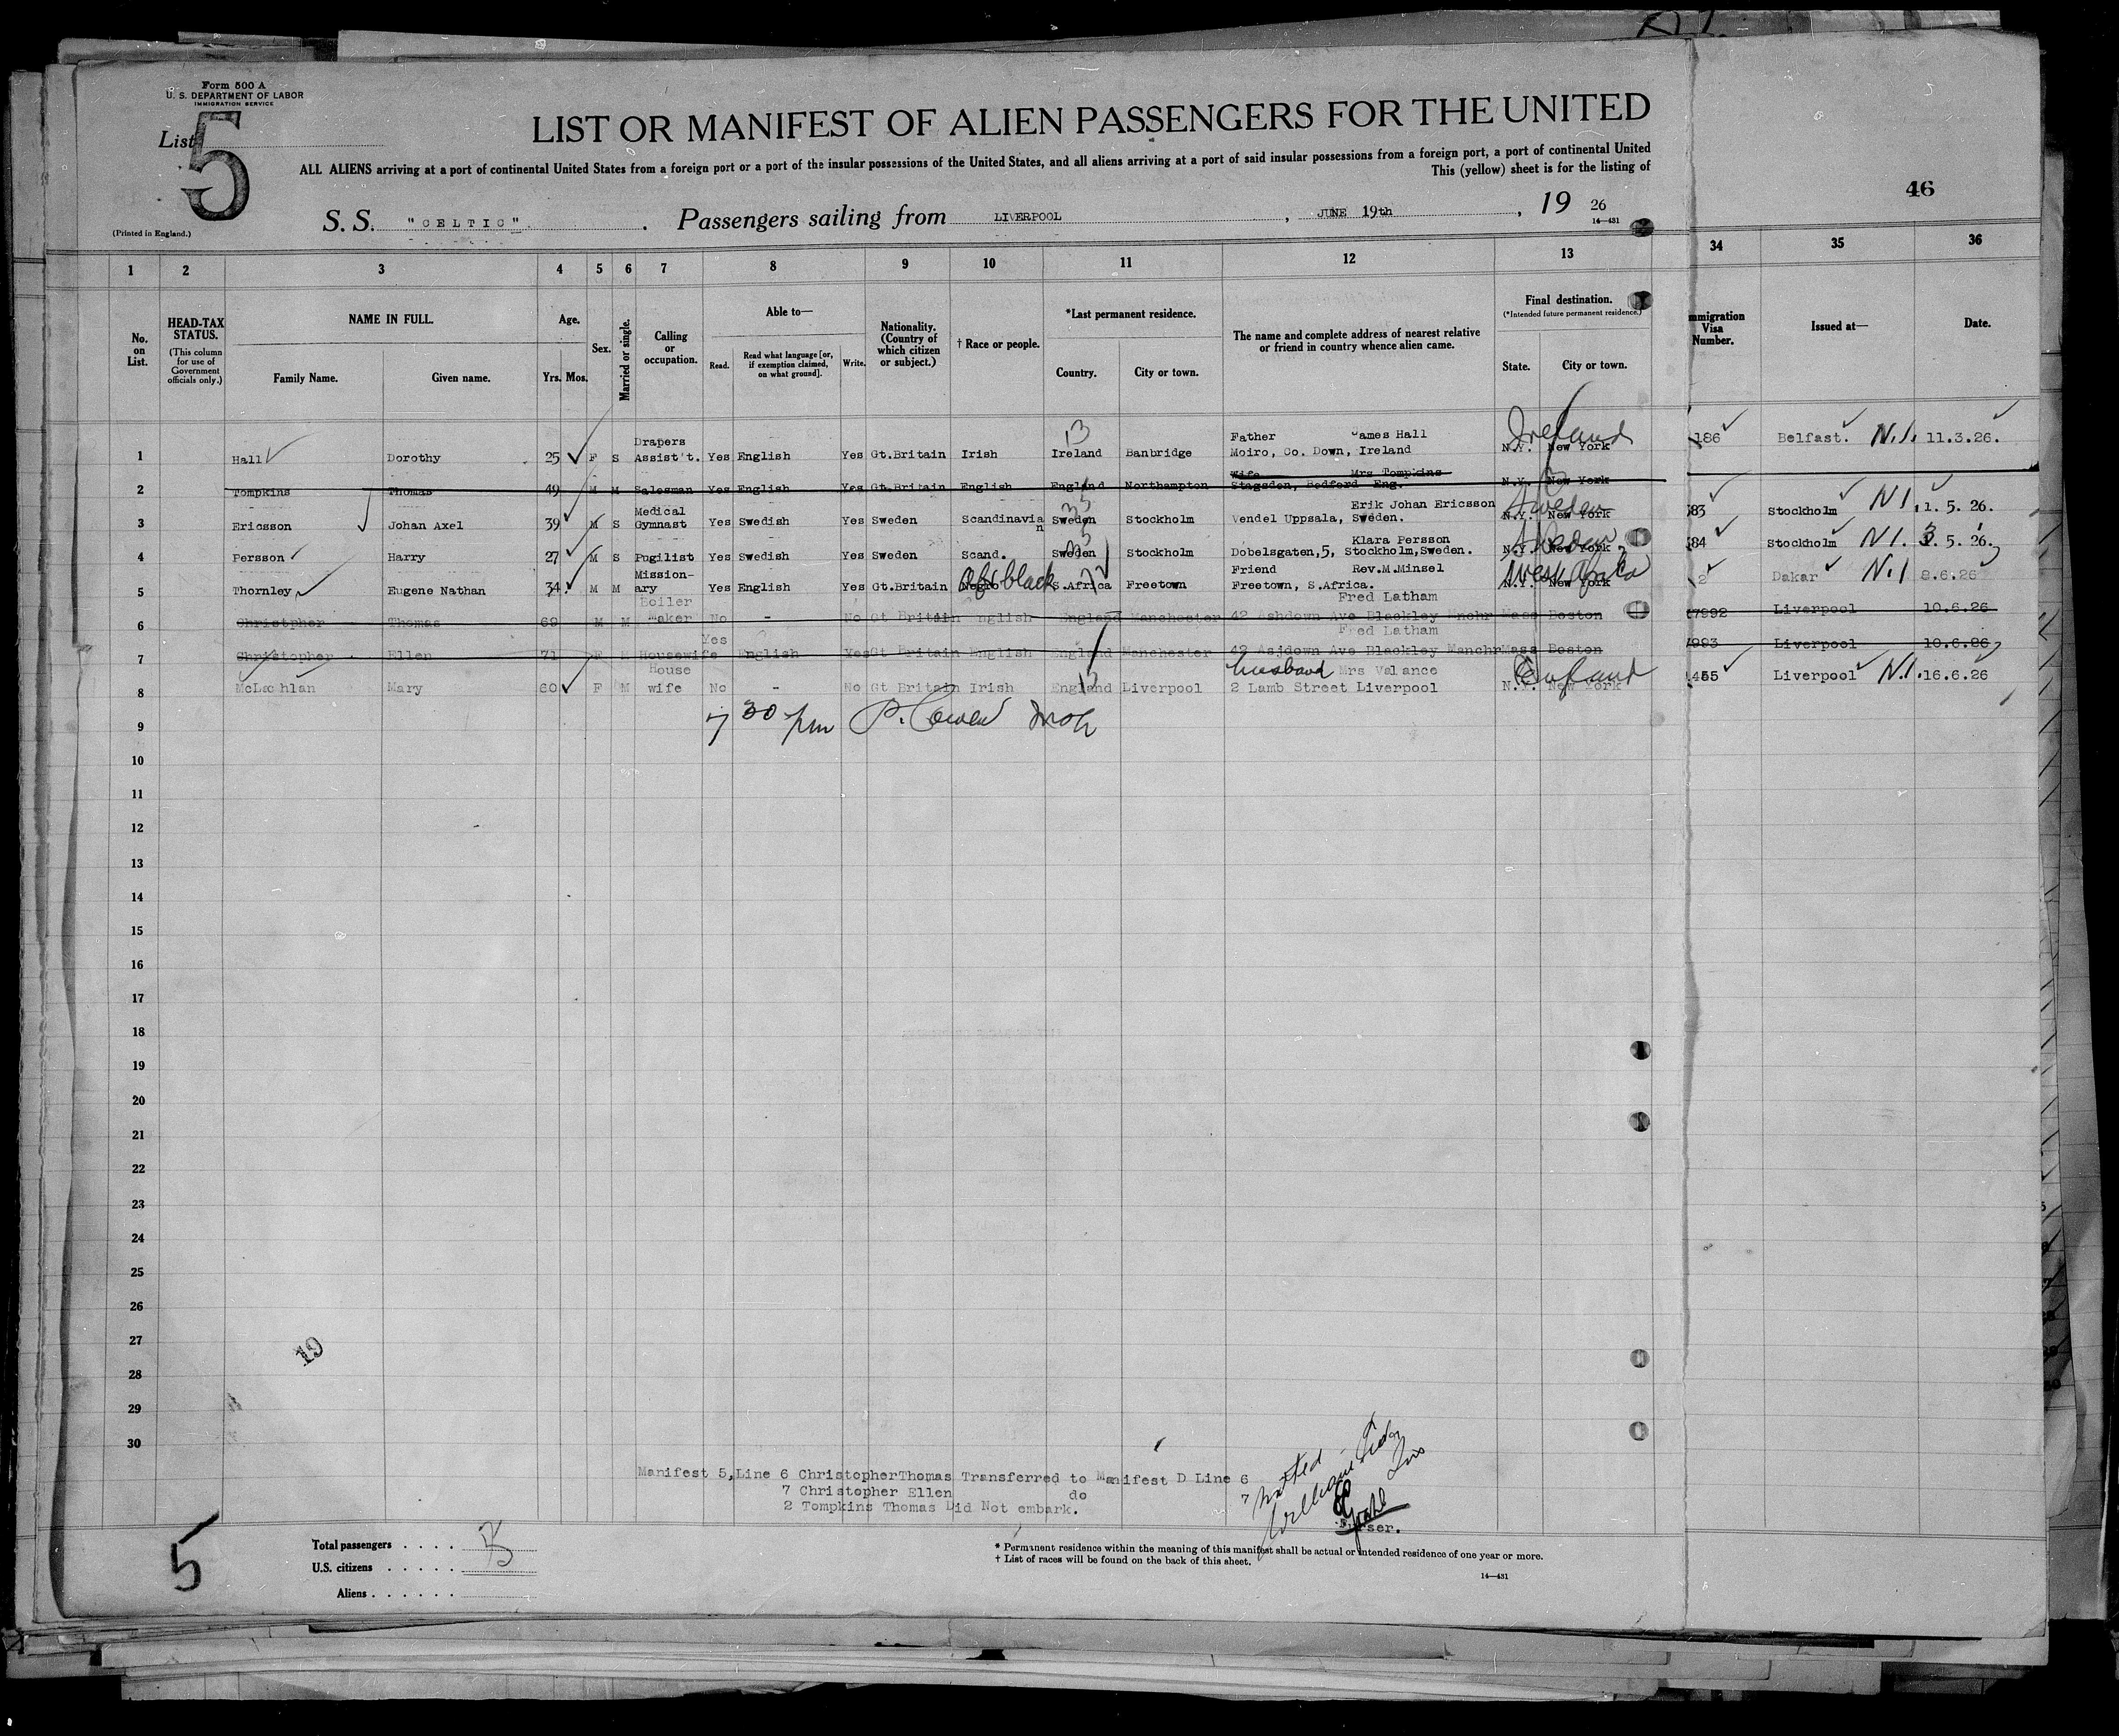 Form 500 A
U. S. DEPARTMENT OF LABOR
IMMIGRATION SERVICE
List 5
LIST OR MANIFEST OF ALIEN PASSENGERS FOR THE UNITED
ALL ALIENS arriving at a port of continental United States from a foreign port or a port of the insular possessions of the United States, and all aliens arriving at a port of said insular possessions from a foreign port, a port of continental United
This (yellow) sheet is for the listing of
46
(Printed in England.)
S. S. "CELTIC". Passengers sailing from LIVERPOOL, JUNE 19th, 19 26
14—431
1 2 3 4 5 6 7 8 9 10 11 12 13 34 35 36
No. on List.
HEAD-TAX STATUS.
(This column for use of Government officials only.)
NAME IN FULL.
Family Name. Given name.
Age.
Yrs. Mos.
Sex.
Married or single.
Calling or occupation.
Able to—
Read. Read what language [or, if exemption claimed, on what ground]. Write.
Nationality. (Country of which citizen or subject.)
† Race or people.
*Last permanent residence.
Country. City or town.
The name and complete address of nearest relative or friend in country whence alien came.
Final destination.
(*Intended future permanent residence.)
State. City or town.
mmigration Visa Number.
Issued at—
Date.
13 Ireland
Drapers Father James Hall
1 Hall Dorothy 25 F S Assist't. Yes English Yes Gt.Britain Irish Ireland Banbridge Moiro, Co. Down, Ireland N.Y. New York 186 Belfast. N.I. 11.3.26.
Wife Mrs Tompkins
2 Tompkins Thomas 49 M M Salesman Yes English Yes Gt.Britain English England Northampton Stagsden, Bedford Eng. N.Y. New York
Medical Erik Johan Ericsson Sweden
3 Ericsson Johan Axel 39 M S Gymnast Yes Swedish Yes Sweden Scandinavian Sweden Stockholm Vendel Uppsala, Sweden. N.Y. New York 83 Stockholm N.I. 1. 5. 26.
Klara Persson Sweden
4 Persson Harry 27 M S Pugilist Yes Swedish Yes Sweden Scand. Sweden Stockholm Dobelsgaten,5, Stockholm,Sweden. N.Y. New York 84 Stockholm N.I. 3. 5. 26.
Mission- Friend Rev.M.Minsel West Africa
5 Thornley Eugene Nathan 34 M M ary Yes English Yes Gt.Britain Negro Afr black S.Africa Freetown Freetown, S.Africa. N.Y. New York 2 Dakar N.I 8.6.26
Boiler Fred Latham
6 Christpher Thomas 69 M M Maker No - No Gt Britain English England Manchester 42 Ashdown Ave Blackley Mnchr Mass Boston 7992 Liverpool 10.6.26
Yes Fred Latham
7 Christopher Ellen 71 F M Housewife English Yes Gt Britain English England Manchester 42 Asjdown Ave Blackley Manchr Mass Boston 993 Liverpool 10.6.26
House husband Mrs Valance England
8 McLachlan Mary 60 F M wife No - No Gt Britain Irish England Liverpool 2 Lamb Street Liverpool N.Y. New York 455 Liverpool N.I. 16.6.26
9 7 30 pm
10
11
12
13
14
15
16
17
18
19
20
21
22
23
24
25
26
27
28
29
30
19
Manifest 5,Line 6 ChristopherThomas Transferred to Manifest D Line 6
7 Christopher Ellen do 7
2 Tompkins Thomas Did Not embark.
noted
Purser.
5
Total passengers . . . . 5
U.S. citizens . . . . . .
Aliens . . . . . .
* Permanent residence within the meaning of this manifest shall be actual or intended residence of one year or more.
† List of races will be found on the back of this sheet.
14—431